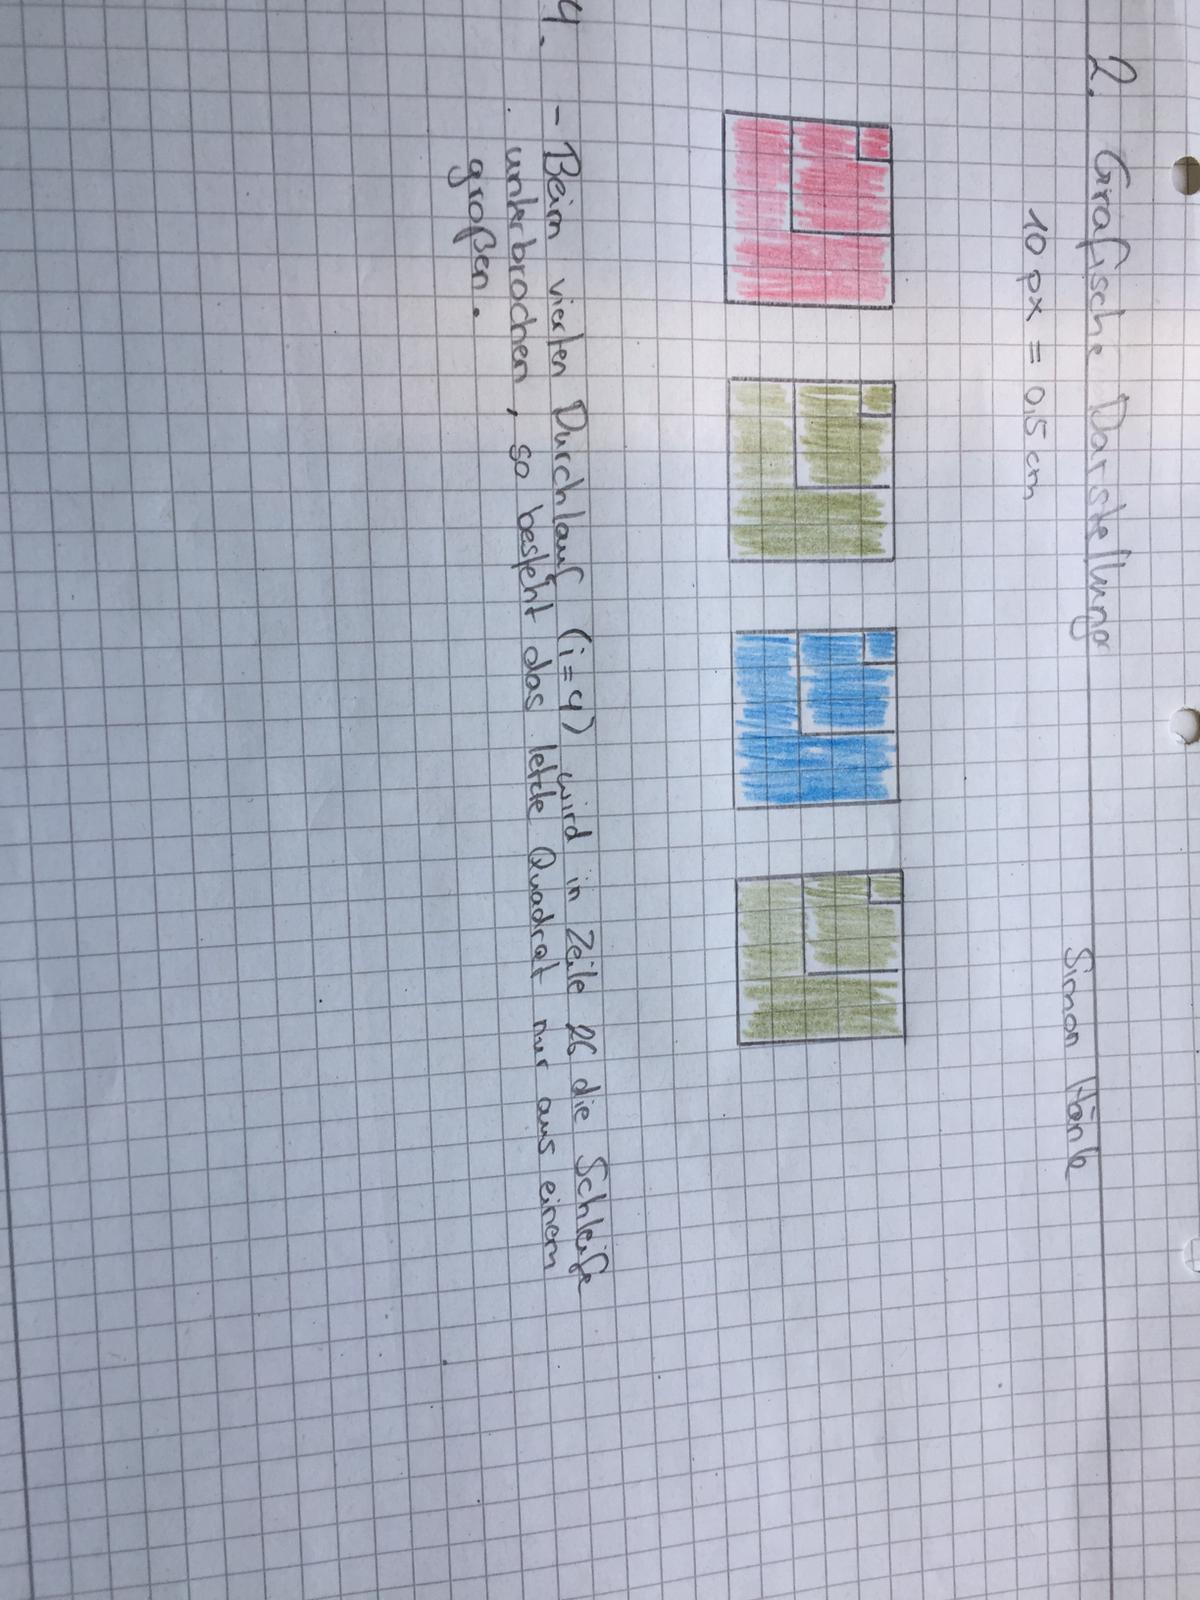 2. Grafische Darstellung
Simon Hänle
10 px = 0,5 cm
4. - Beim vierten Durchlauf (i=4) wird in Zeile 26 die Schleife
unterbrochen, so besteht das letzte Quadrat nur aus einem
großen.